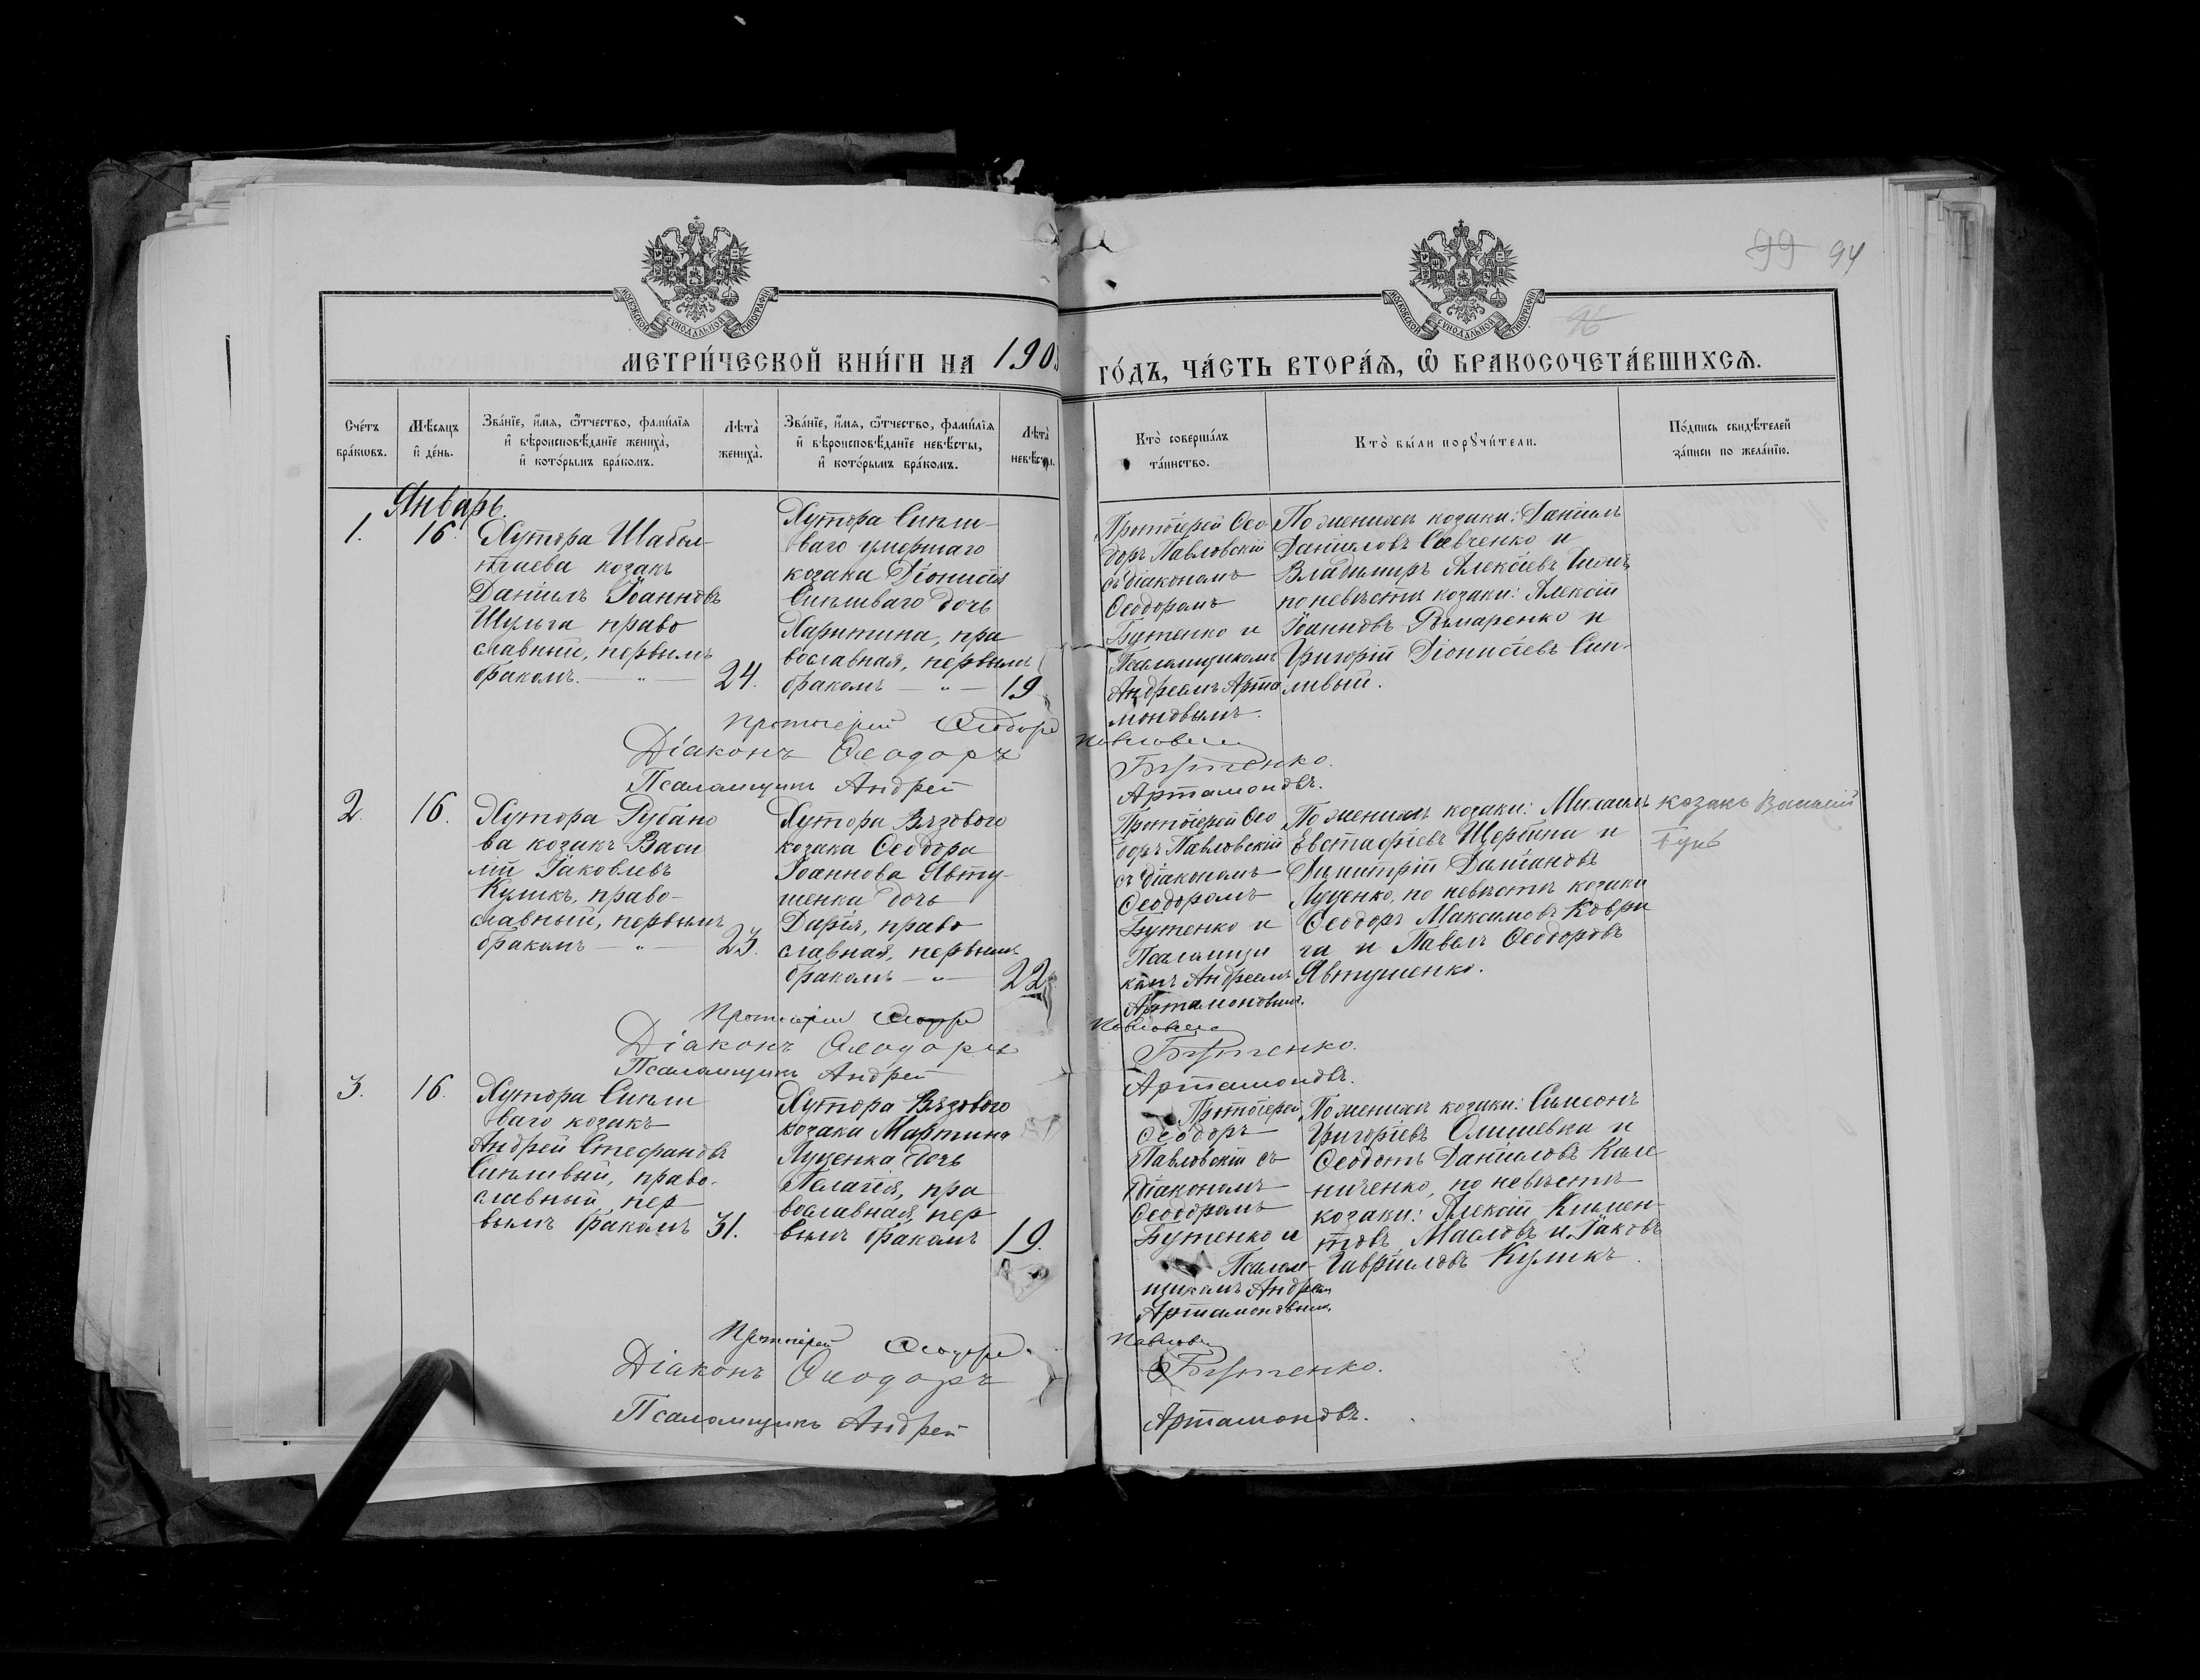 99 94
96
МОСКОВСКОЙ СѴНОДАЛЬНОЙ ТИПОГРАФІИ
МОСКОВСКОЙ СѴНОДАЛЬНОЙ ТИПОГРАФІИ
МЕТРИ́ЧЕСКОЙ КНИ́ГИ НА 190
ГО́ДЪ, ЧА́СТЬ ВТОРА́Ѧ, Ѽ БРАКОСОЧЕТА́ВШИХСѦ.
Сче́тъ бра́кѡвъ.
Мѣ́сѧцъ и҆ де́нь.
Зва́нїе, и҆́мѧ, ѻ҆́тчество, фамі́лїѧ и҆ вѣроисповѣ́данїе жениха̀, и҆ кото́рымъ бра́комъ.
Лѣта̀ жениха̀.
Зва́нїе, и҆́мѧ, ѻ҆́тчество, фамі́лїѧ и҆ вѣроисповѣ́данїе невѣ́сты, и҆ кото́рымъ бра́комъ.
Лѣта̀ невѣ́сты.
Кто̀ соверша́лъ та́инство.
Кто̀ бы́ли порꙋчи́тели.
По́дпись свидѣ́телей за́писи по жела́нїю.
Январь.
1.
16.
Хутора Шабел-
козакъ
Даніилъ Іоанновъ
Шульга право
славный, первымъ
бракомъ. — " —
24.
Хутора Сипли-
ваго умершаго
козака Діонисія
Сипливаго дочь
Харитина, пра
вославная, первымъ
бракомъ — " —
19
Протоіерей Ѳео-
доръ Павловскій
съ діакономъ
Ѳеодоромъ
Бутенко и
Псаломщикомъ
Андреемъ Арта
моновымъ.
По женихѣ козаки: Даніилъ
Даніиловъ Савченко и
Владимиръ Алексіевъ
по невѣстѣ козаки: Алексій
Іоанновъ Рымаренко и
Григорій Діонисіевъ Сип-
ливый.
Протоіерей Ѳеодоръ Павловскій
Діаконъ Ѳеодоръ Бутенко.
Псаломщикъ Андрей Артамоновъ.
2.
16.
Хутора Рубано
ва козакъ Васи
лій Іаковлевъ
Куликъ, право-
славный, первымъ
бракомъ — " —
23.
Хутора Вязового
козака Ѳеодора
Іоаннова Явту-
шенка дочь
Дарія, право
славная, первымъ
бракомъ — " —
22
Протоіерей Ѳео
доръ Павловскій
съ діакономъ
Ѳеодоромъ
Бутенко и
Псаломщи
комъ Андреемъ
Артамоновымъ.
По женихѣ козаки: Михаилъ
Евстафіевъ Щербина и
Димитрій Даміановъ
Луценко, по невѣстѣ козаки
Ѳеодоръ Максимовъ Коври
га и Павелъ Ѳеодоровъ
Явтушенко.
козакъ Василій
Протоіерей Ѳеодоръ Павловскій
Діаконъ Ѳеодоръ Бутенко.
Псаломщикъ Андрей Артамоновъ.
3.
16.
Хутора Сипли
ваго козакъ
Андрей Стефановъ
Сипливый, право-
славный, пер
вымъ бракомъ
31.
Хутора Вязового
козака Мартина
Луценка дочь
Пелагія, пра
вославная, пер
вымъ бракомъ
19.
Протоіерей
Ѳеодоръ
Павловскій съ
діакономъ
Ѳеодоромъ
Бутенко и
Псалом-
щикомъ Андреемъ
Артамоновымъ
По женихѣ козаки: Симеонъ
Григоріевъ Олишевка и
Ѳеодотъ Даніиловъ Кале
ниченко, по невѣстѣ
козаки: Алексій Климен-
товъ Масловъ и Іаковъ
Гавріиловъ Куликъ.
Протоіерей Ѳеодоръ Павловскій
Діаконъ Ѳеодоръ Бутенко.
Псаломщикъ Андрей Артамоновъ.